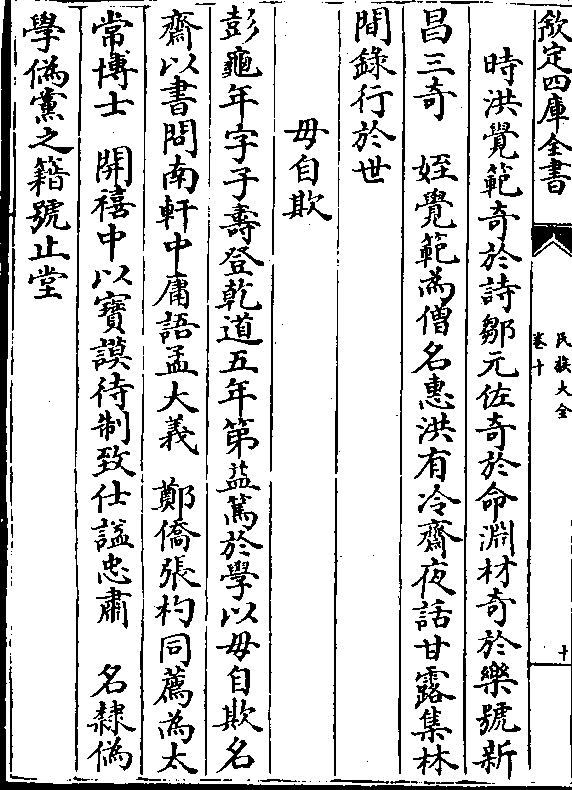 欽定四庫全書
氏族大全
卷十
十
時洪覺範奇於詩鄒元佐奇於命淵材奇於樂號新
昌三奇　姪覺範為僧名惠洪有冷齋夜話甘露集林
間錄行於世
毋自欺
彭龜年字子壽登乾道五年第益篤於學以毋自欺名
齋以書問南軒中庸語孟大義　鄭僑張杓同薦為太
常博士　開禧中以寶謨待制致仕諡忠肅　名隸偽
學偽黨之籍號止堂